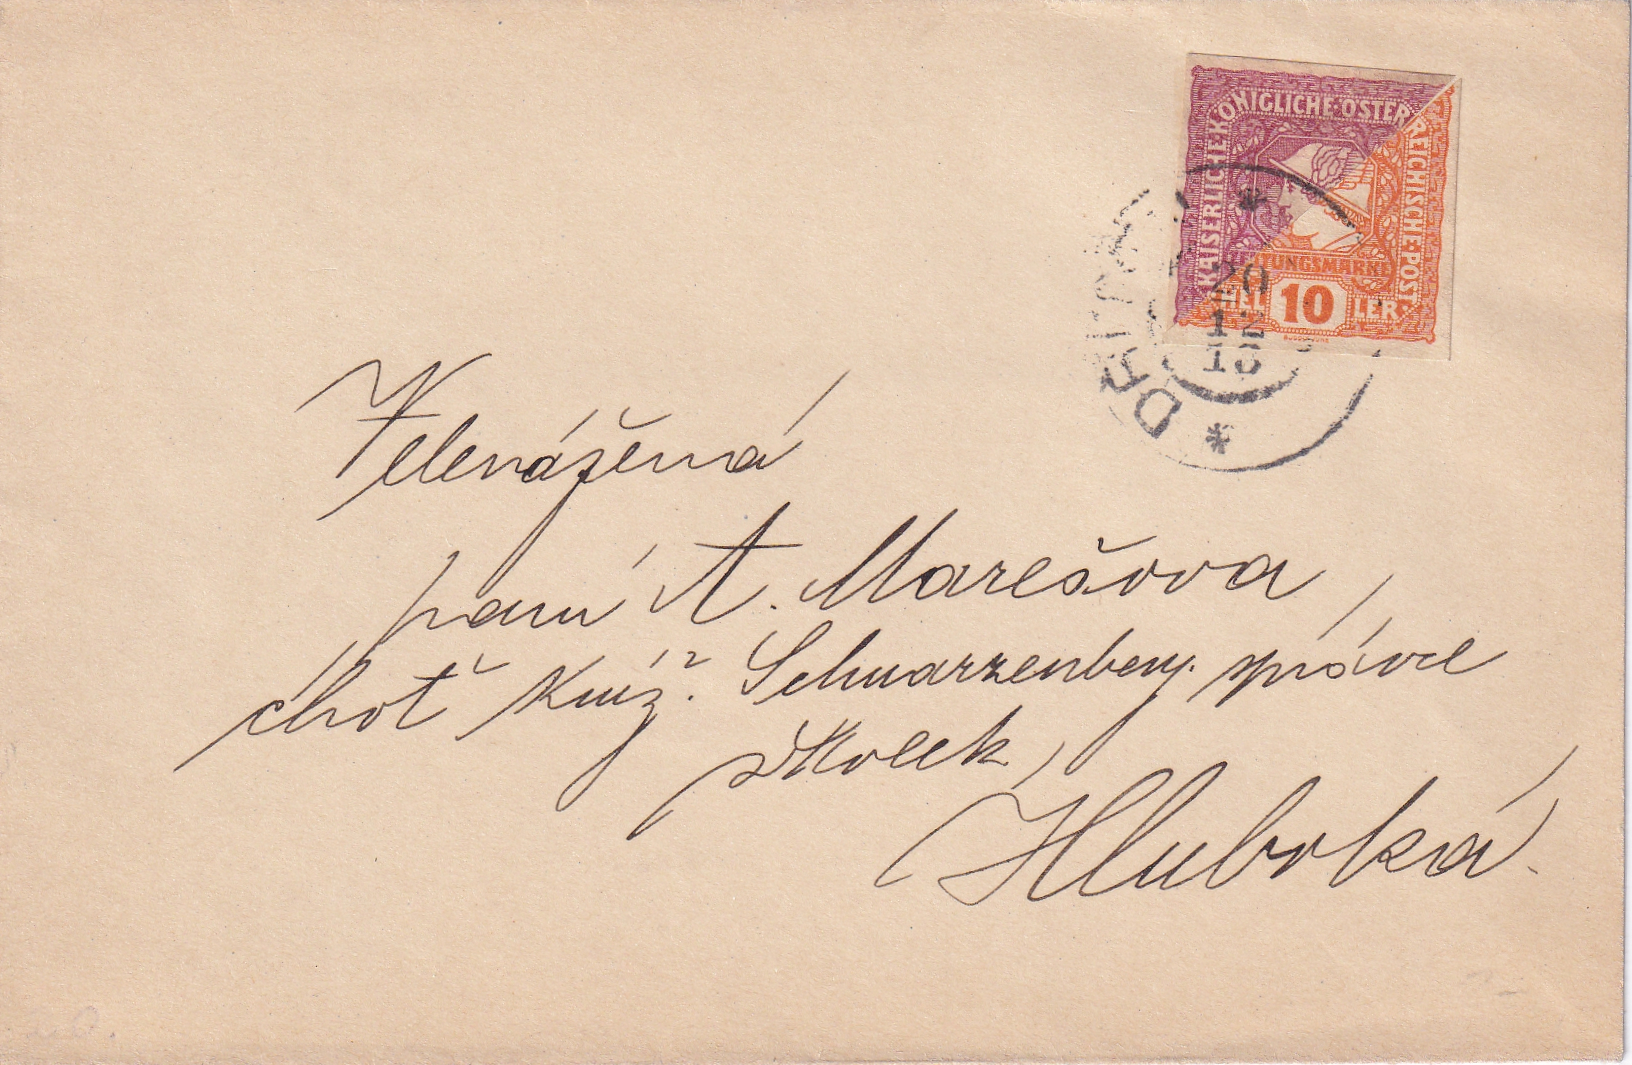 KAISERLICHE·KÖNIGLICHE·ÖSTERREICHISCHE·POST
TUNGSMARKE
HEL 10 LER
20
12
18
Velevážená
paní A. Marešova,
choť kníž. Schwarzenberg. správce
školek,
Hluboká.